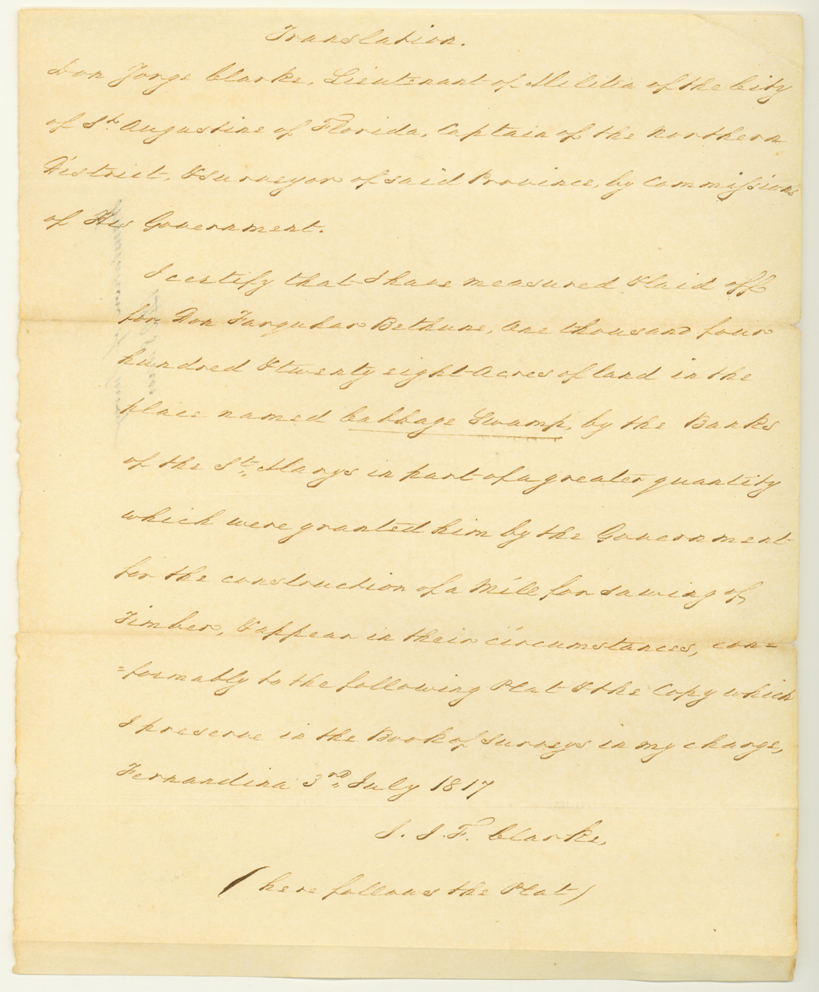 Translation.
Don Jorge Clarke, Lieutenant of Militia of the City
of St. Augustine of Florida, Captain of the Northern
District, & surveyor of said Province, by Commissions
of His Government.
I certify that I have measured & laid off
for Don Farquhar Bethune, one thousand four
hundred & twenty eight Acres of land in the
place named Cabbage Swamp, by the Banks
of the St. Marys in part of a greater quantity
which were granted him by the Government
for the construction of a Mill for sawing of
Timber, & appear in their circumstances, con=
=formably to the following Plat & the Copy which
I preserve in the Book of Surveys in my charge,
Fernandina 3rd July 1817
J. J. F. Clarke,
(here follows the Plat)